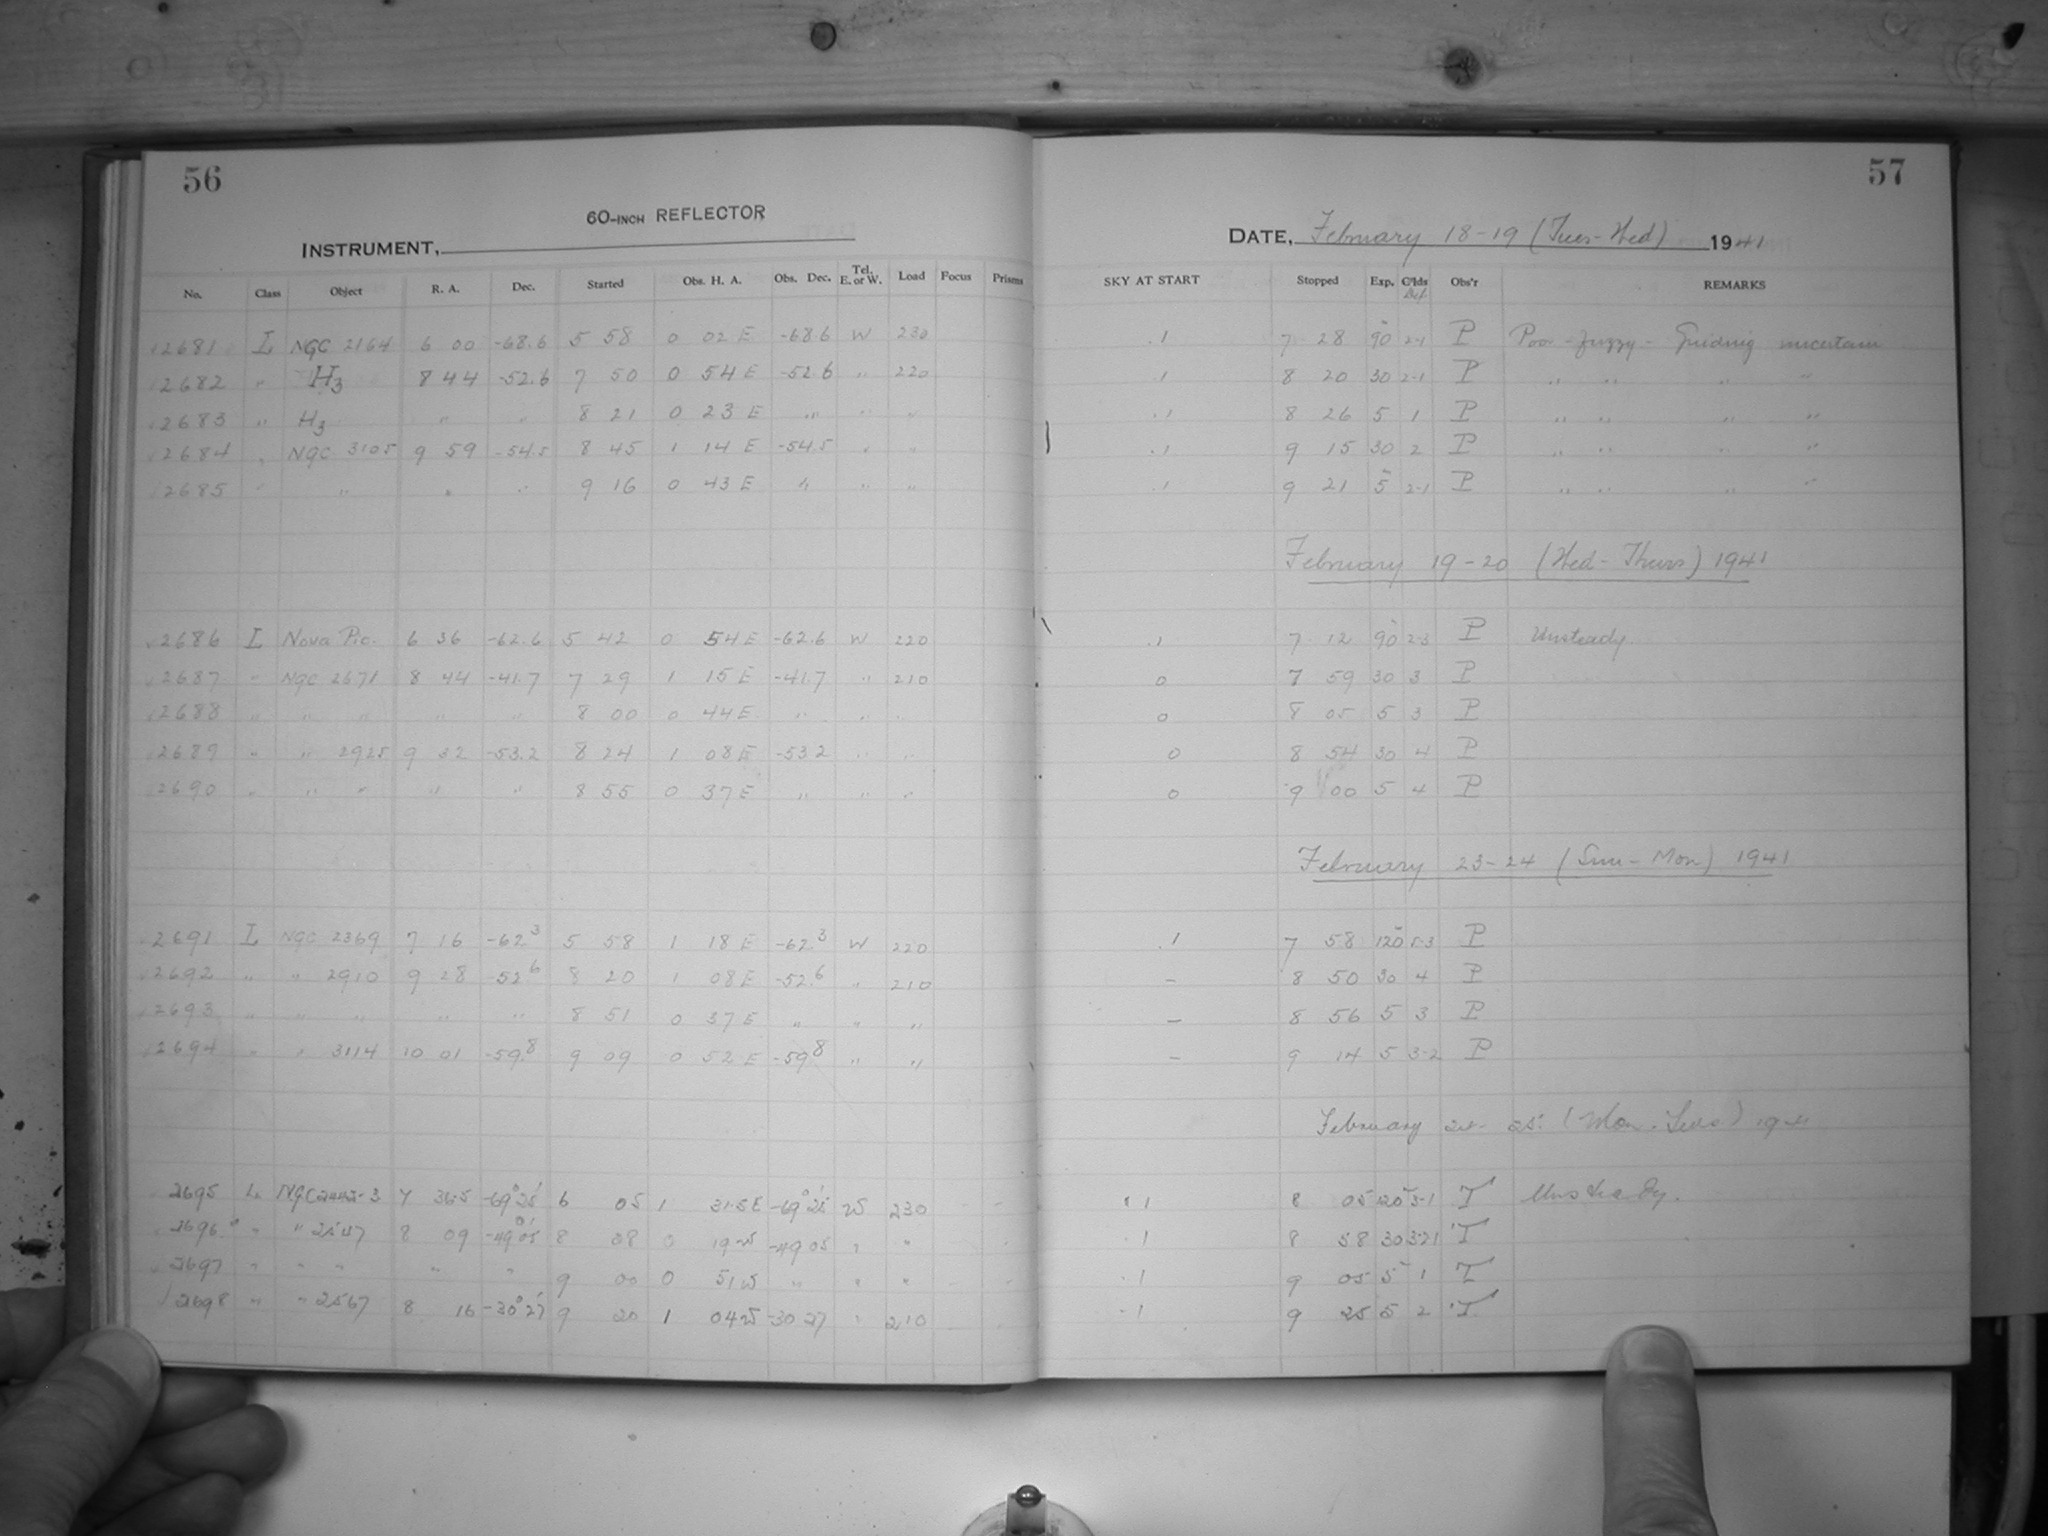 56
60-INCH REFLECTOR
INSTRUMENT,
No. Class Object R. A. Dec. Started Obs. H. A. Obs. Dec. Tel. E. or W. Load Focus Prisms
2681 L NGC 2164 6 00 -68.6 5 58 0 02 E -68.6 W 230
2682 " H3 8 44 -52.6 7 50 0 54 E -52.6 " 220
2683 " H3 " " 8 21 0 23 E " " "
2684 " NGC 3105 9 59 -54.5 8 45 1 14 E -54.5 " "
2685 " " " " 9 16 0 43 E " " "
2686 L Nova Pic. 6 36 -62.6 5 42 0 54 E -62.6 W 220
2687 " NGC 2671 8 44 -41.7 7 29 1 15 E -41.7 " 210
2688 " " " " " 8 00 0 44 E " " "
2689 " " 2925 9 32 -53.2 8 24 1 08 E -53.2 " "
2690 " " " " " 8 55 0 37 E " " "
2691 L NGC 2369 7 16 -62.3 5 58 1 18 E -62.3 W 220
2692 " " 2910 9 28 -52.6 8 20 1 08 E -52.6 " 210
2693 " " " " " 8 51 0 37 E " " "
2694 " " 3114 10 01 -59.8 9 09 0 52 E -59.8 " "
2695 L NGC 2442-3 7 36.5 -69° 25' 6 05 1 31.5 E -69° 25' W 230
2696 " " 2547 8 09 -49° 05' 8 28 0 19 W -49 05 " "
2697 " " " " " 9 00 0 51 W " " "
2698 " " 2567 8 16 -30° 27' 9 20 1 04 W -30 27 " 210
57
DATE, February 18-19 (Tues-Wed) 1941
SKY AT START Stopped Exp. C'lds Def. Obs'r REMARKS
.1 7 28 90 2-1 P Poor - fuzzy - Guiding uncertain
.1 8 20 30 2-1 P " " " "
.1 8 26 5 1 P " " " "
.1 9 15 30 2 P " " " "
.1 9 21 5 2-1 P " " " "
February 19-20 (Wed-Thurs) 1941
.1 7 12 90 2-3 P Unsteady.
0 7 59 30 3 P
0 8 05 5 3 P
0 8 54 30 4 P
0 9 00 5 4 P
February 23-24 (Sun-Mon) 1941
.1 7 58 120 P
- 8 50 30 4 P
- 8 56 5 3 P
- 9 14 5 3-2 P
February 24-25 (Mon-Tues) 1941
.1 8 05 120 3-1 T Unsteady.
.1 8 58 30 T
.1 9 05 5 1 T
.1 9 25 5 2 T